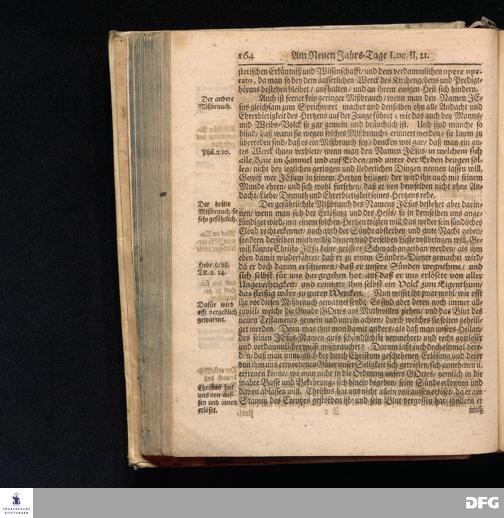 164 Am Neuen Jahrs-Tage Luc. II, 21.
storischen Erkäntniß und Wissenschafft/ und dem verdammlichen opere ope-
rato, da man so bey dem äusserlichen Werck des Kirchengehens und Predigt-
hörens bestehen bleibet/ auffhalten/ und an ihrem ewigen Heil sich hindern.
Der andere
Mißbrauch.
Auch ist ferner kein geringer Mißbrauch/ wenn man den Namen JE-
sus gleichsam zum Sprichwort machet und denselben ohn alle Andacht und
Ehrerbietigkeit des Hertzens auf der Zunge führet/ wie das auch bey Manns
und Weibs-Volck so gar gemein und bräuchlich ist. Und sind manche so
blind/ daß wann sie wegen solches Mißbrauchs erinnert werden/ sie kaum zu
überreden sind/ daß es ein Mißbrauch sey/ dencken wol gar/ daß man ein gu-
tes Werck ihnen verbiete/ wenn man den Namen JEsus in welchem sich
Phil. 2/10.
alle Knie im Himmel und auf Erden/ und unter der Erden beugen sol-
len/ nicht bey jeglichen geringen und liederlichen Dingen nennen lassen will.
Gewiß wer JEsum in seinem Hertzen heiliget/ der wird ihn auch mit seinem
Munde ehren/ und sich wohl fürsehen/ daß er von demselben nicht ohne An-
dacht/ Liebe/ Demuth und Ehrerbietigkeit seines Hertzens rede.
Der dritte
Mißbrauch, so
sehr gefährlich.
Der gefährlichste Mißbrauch des Namens JEsus bestehet aber darin-
nen/ wenn man sich der Erlösung und des Heils/ so in demselben uns ange-
kündiget wird/ mit einem solchen Hertzen trösten will/ das weder sein sündliches
Elend recht erkennet/ noch auch der Sünde absterben und gute Nacht geben/
sondern derselben muthwillig dienen und derselben Lüste vollbringen will. Ge-
wiß könnte Christo JEsu keine grössere Schmach angethan werden/ als ihm
eben damit wiederfähret/ daß er zu einem Sünden-Diener gemacht wird/
Hebr. 9/28.
Tit. 2. 14.
da er doch darum erschienen/ daß er unsere Sünden wegnehme/ und
sich selbst für uns dargegeben hat/ auf daß er uns erlösete von aller
Ungerechtigkeit/ und reinigte ihm selbst ein Volck zum Eigenthum/
das fleißig wäre zu guten Wercken. Nun wisset ihr zwar wohl/ wie offt
Dafür wird
offt vergeblich
gewarnet.
ihr vor diesen Mißbrauch gewarnet seyd/ Es sind aber deren noch immer all-
zuviele/ welche die Gnade GOttes auf Muthwillen ziehen/ und das Blut des
neuen Testaments gemein und unrein achten/ durch welches sie solten geheili-
get werden. Denn was thut man damit anders/ als daß man unsers Heilans
des seinen JEsus-Namen aufs schändlichste verunehret/ und recht gottloser
und verdammlicher weise mißbrauchet? Darum lasset euch doch einmal bere-
den/ daß man unmöglich der durch Christum geschehenen Erlösung und derer
von ihm uns erworbenen Güter unser Seligkeit sich getrösten/ sich annehmen/
erfreuen könne/ wo man nicht in die Ordnung unsers GOttes/ nemlich in die
wahre Busse und Bekehrung/ sich hinein begeben/ seine Sünde erkennen und
Christus hat
uns von aus-
sen und innen
erlöset.
davon ablassen will. Christus hat uns nicht allein von aussen erlöset/ da er am
Stamm des Creutzes gestorben ist/ und sein Blut vergossen hat/ sondern er
muß
FRANCKESCHE
STIFTUNGEN
DFG